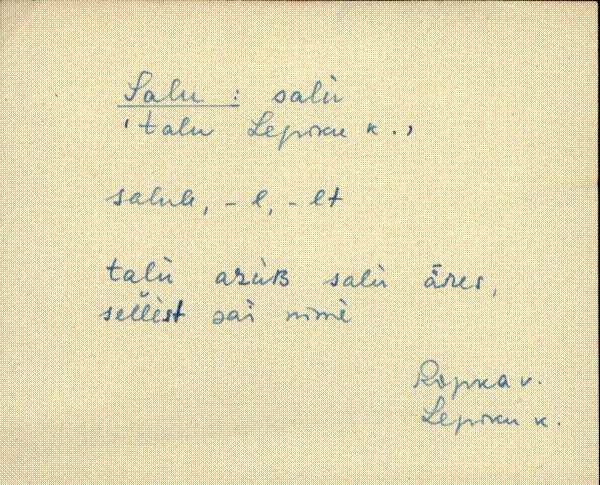 Salu : salù
'talu Lepiku k.,
salule, - l, - lt
talù asùʙ salù āres,
sellest sai nimè
Ropka v.
Lepiku k.